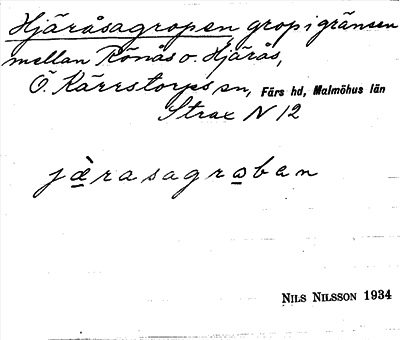 Hjäråsagropen grop i gränsen
mellan Rönås o. Hjärås,
Ö. Kärrstorps sn, Färs hd, Malmöhus län
Strax N 12
jæ̀rasagrɔban
NILS NILSSON 1934